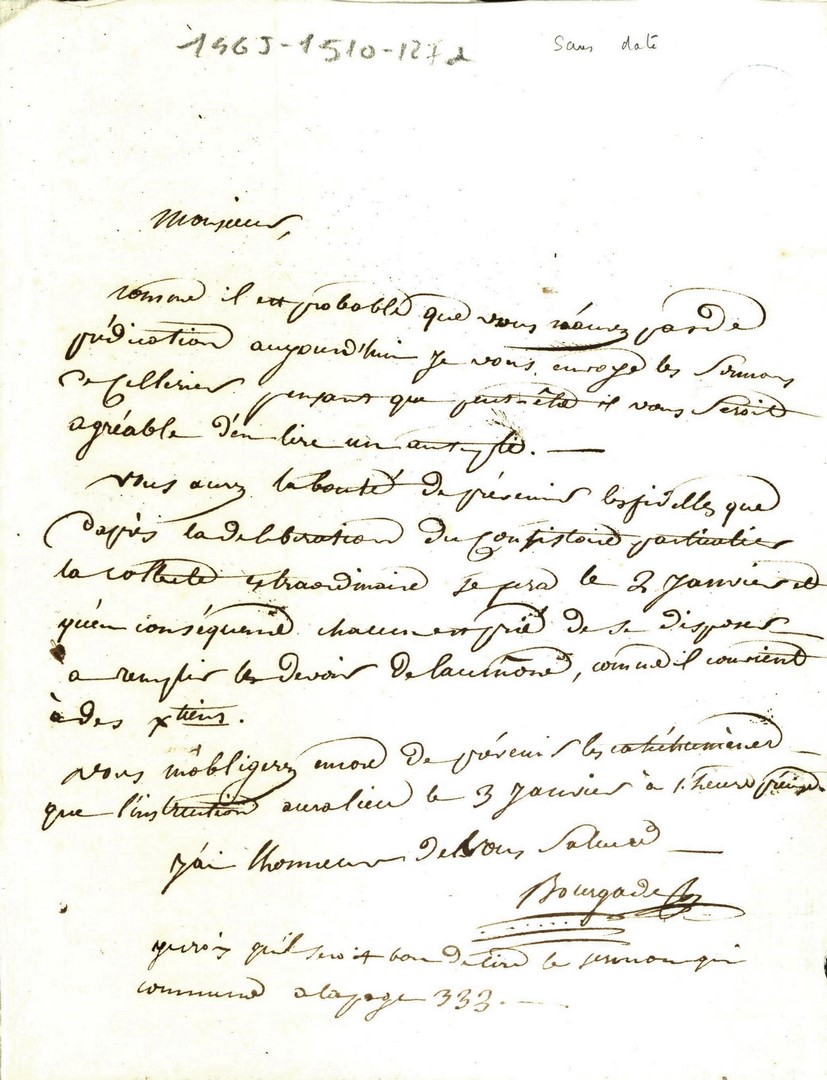 Sans date
Monsieur,
comme il est probable que vous n'aurez pas de
prédication aujourd'hui je vous envoye les Sermons
de Cellerier pensant que peut être il vous seroit
agréable d'en lire un au temple. —
vous aurez la bonté de prévenir les fidelles que
d'après la deliberation du Consistoire particulier
la collecte extraordinaire se fera le 2 Janvier et
qu'en conséquence chacun est prié de se disposer
a remplir les devoir de l'aumône, comme il convient
à des xtiens.
vous m'obligerez encore de prévenir les catéchumènes —
que l'instruction aura lieu le 3 Janvier à 1. heure précise.
j'ai l'honneur de vous saluer —
Bourgade
je crois qu'il seroit bon de lire le sermon qui
commence a la page 333. —